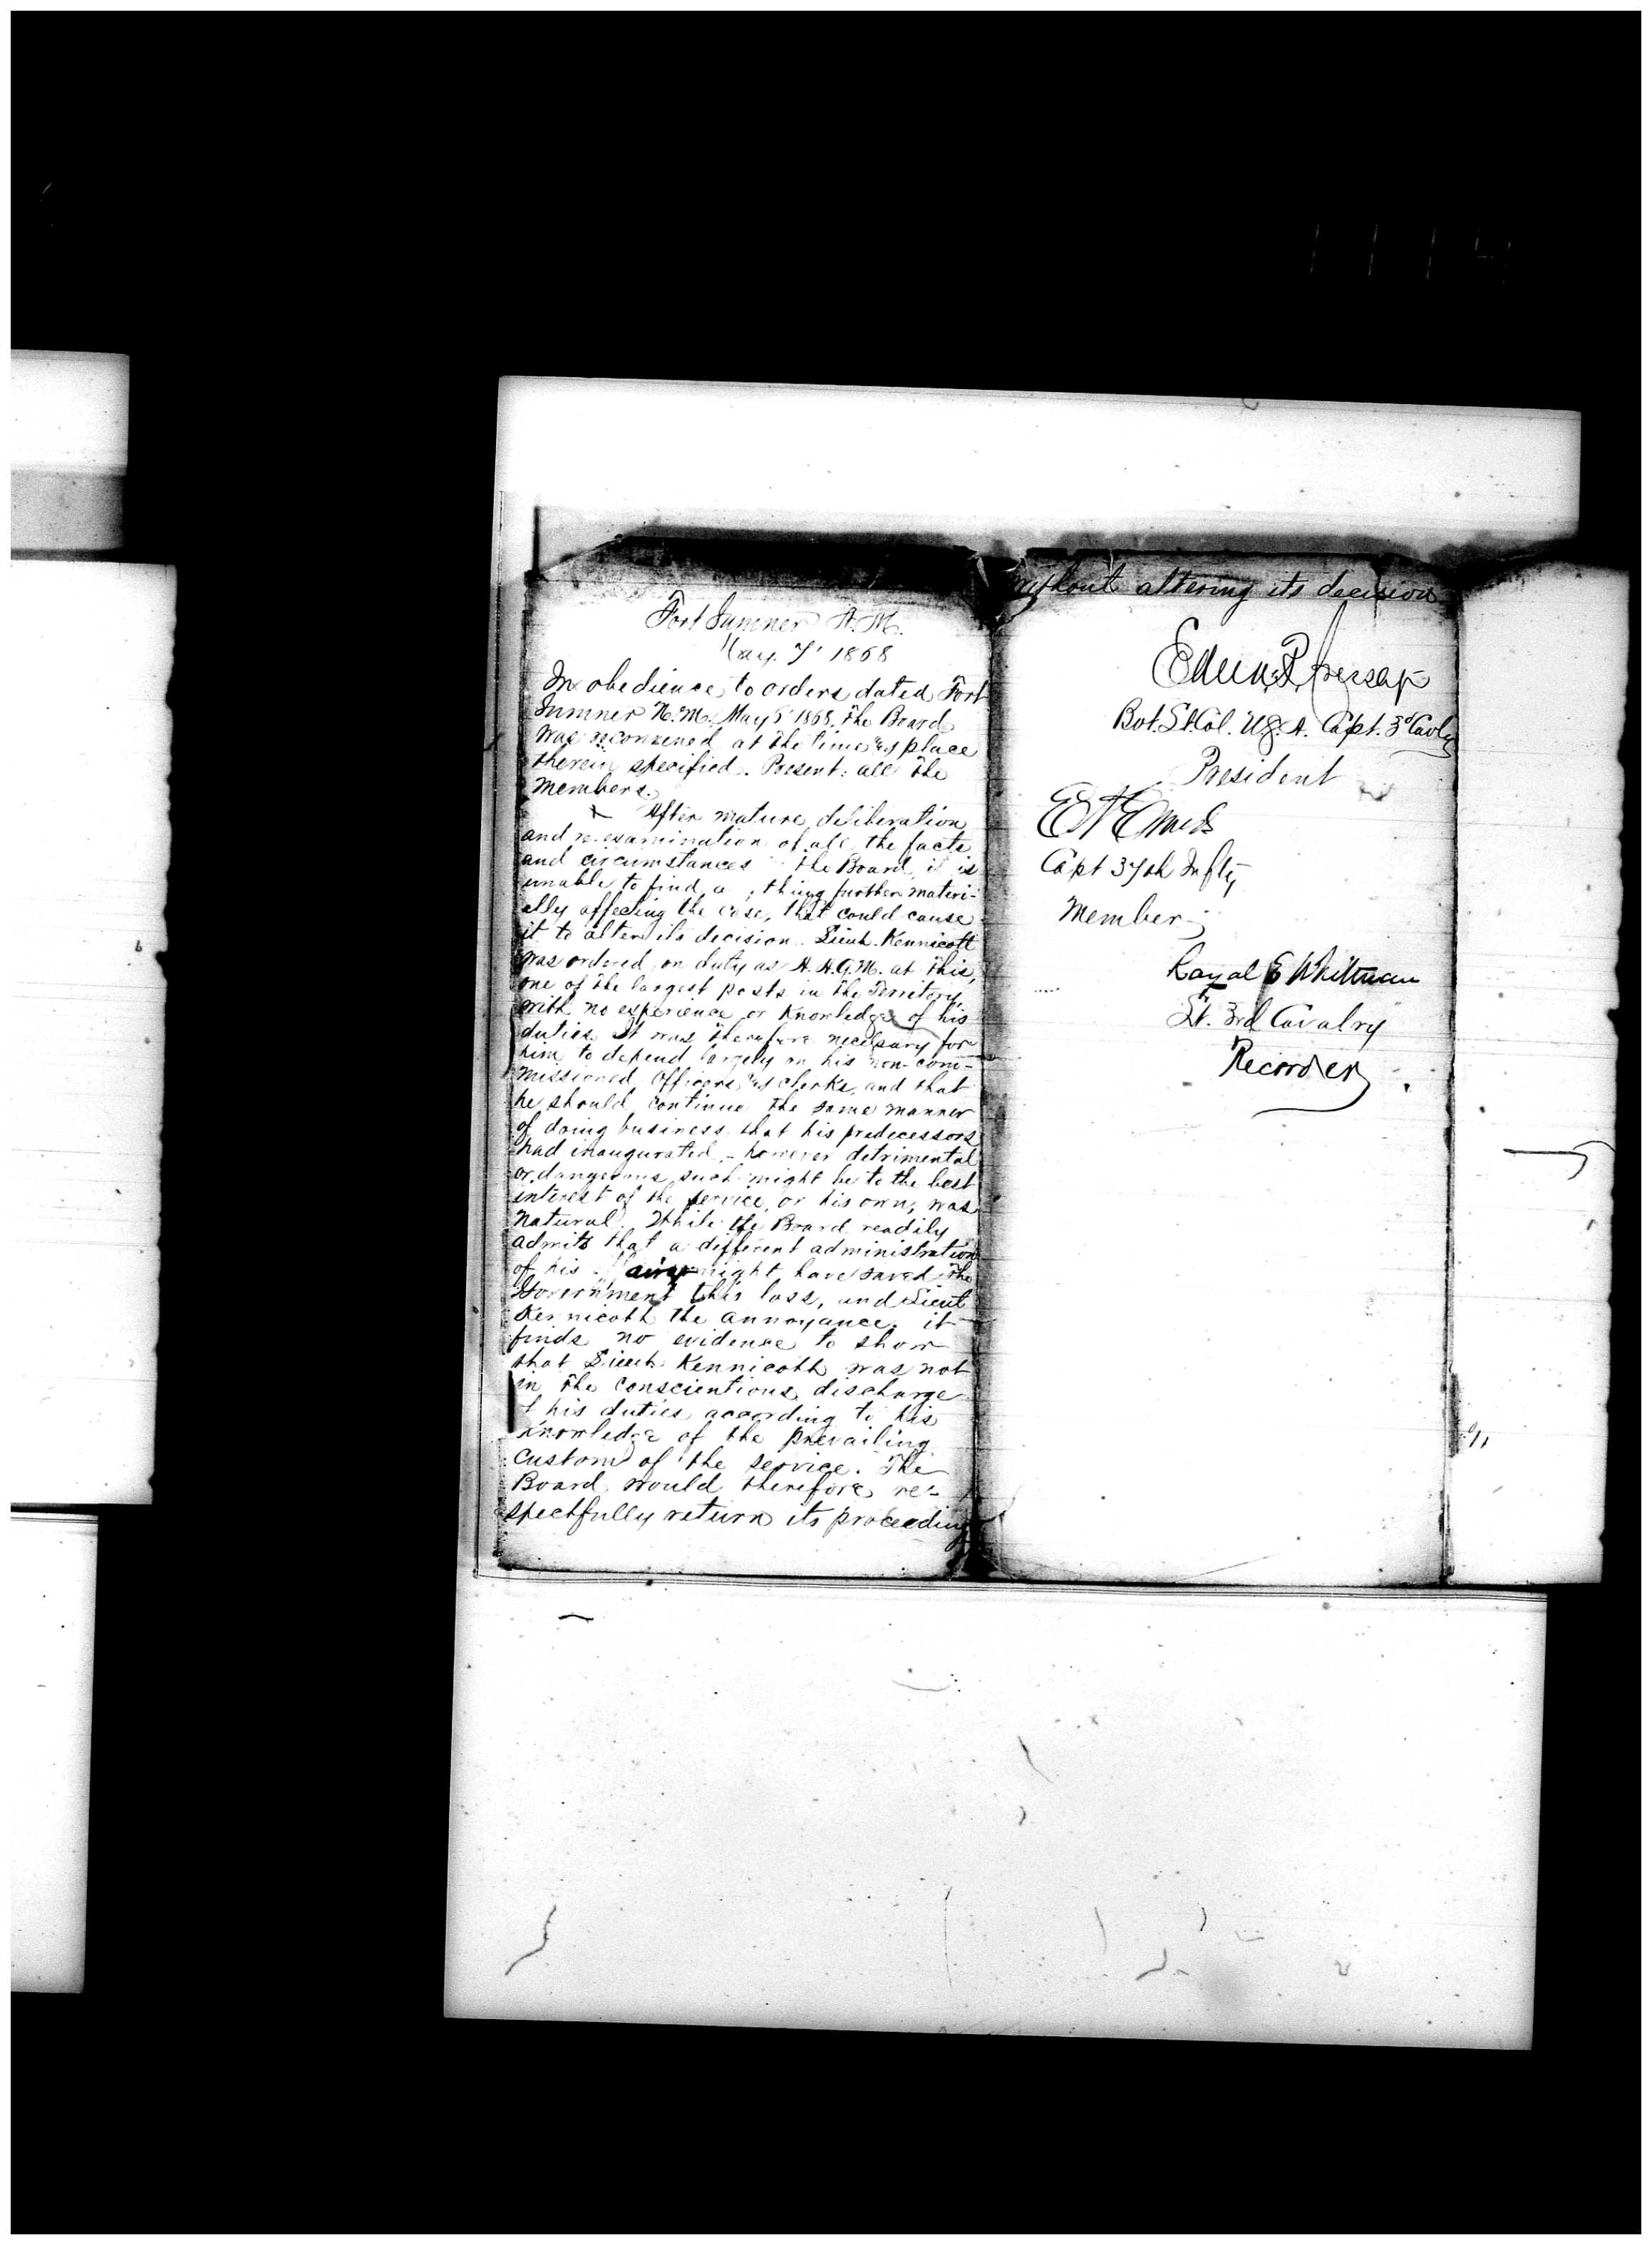 Fort Sumner N.M.
May 7th 1868
In obedience to orders dated Fort
Sumner N.M. May 6th 1868, the Board
was reconvened at the time and place
therein specified. Present: all the
Members.
After mature deliberation
and re-examination of all the facts
and circumstances the Board, it is
unable to find a thing further materi-
ally affecting the case, that could cause
it to alter its decision. Lieut. Kennicott
was ordered on duty as A.A.Q.M. at this,
one of the largest posts in the Territory,
with no experience or Knowledge of his
duties. It was therefore necessary for
him to depend largely on his non-com-
missioned Officers and clerks, and that
he should continue the same manner
of doing business that his predecessors
had inaugurated - however detrimental
or dangerous such might be to the best
interest of the service, or his own, was
natural. While the Board readily
admits that a different administration
of his might have saved the
Government this loss, and Lieut
Kennicott the annoyance, it
finds no evidence to show
that Lieut. Kennicott was not
in the conscientious discharge
of his duties according to his
Knowledge of the prevailing
custom of the service. The
Board would therefore re-
spectfully return its proceedings
without altering its decision
Bvt. Lt. Col. U.S.A. Capt. 3d Cavly
President
Capt 37th Infty
Member
Royal E Whitman
Lt. 3rd Cavalry
Recorder